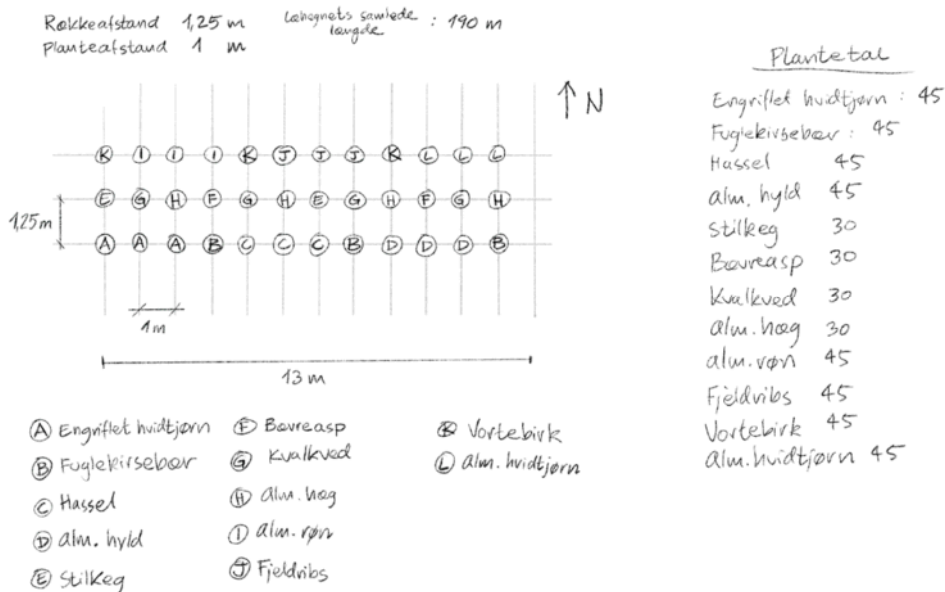 Rækkeafstand 1,25 m
Planteafstand 1 m
Læhegnets samlede længde : 190 m
↑ N
K I I I K J J J K L L L
E G H F G H E G H F G H
A A A B C C C B D D D B
1,25 m
1 m
13 m
Ⓐ Engriflet hvidtjørn
Ⓑ Fuglekirsebær
Ⓒ Hassel
Ⓓ alm. hyld
Ⓔ Stilkeg
Ⓕ Bævreasp
Ⓖ Kvalkved
Ⓗ alm. hæg
Ⓘ alm. røn
Ⓙ Fjeldribs
Ⓚ Vortebirk
Ⓛ alm. hvidtjørn
Plantetal
Engriflet hvidtjørn : 45
Fuglekirsebær : 45
Hassel 45
alm. hyld 45
Stilkeg 30
Bævreasp 30
Kvalkved 30
alm. hæg 30
alm. røn 45
Fjeldribs 45
Vortebirk 45
alm. hvidtjørn 45